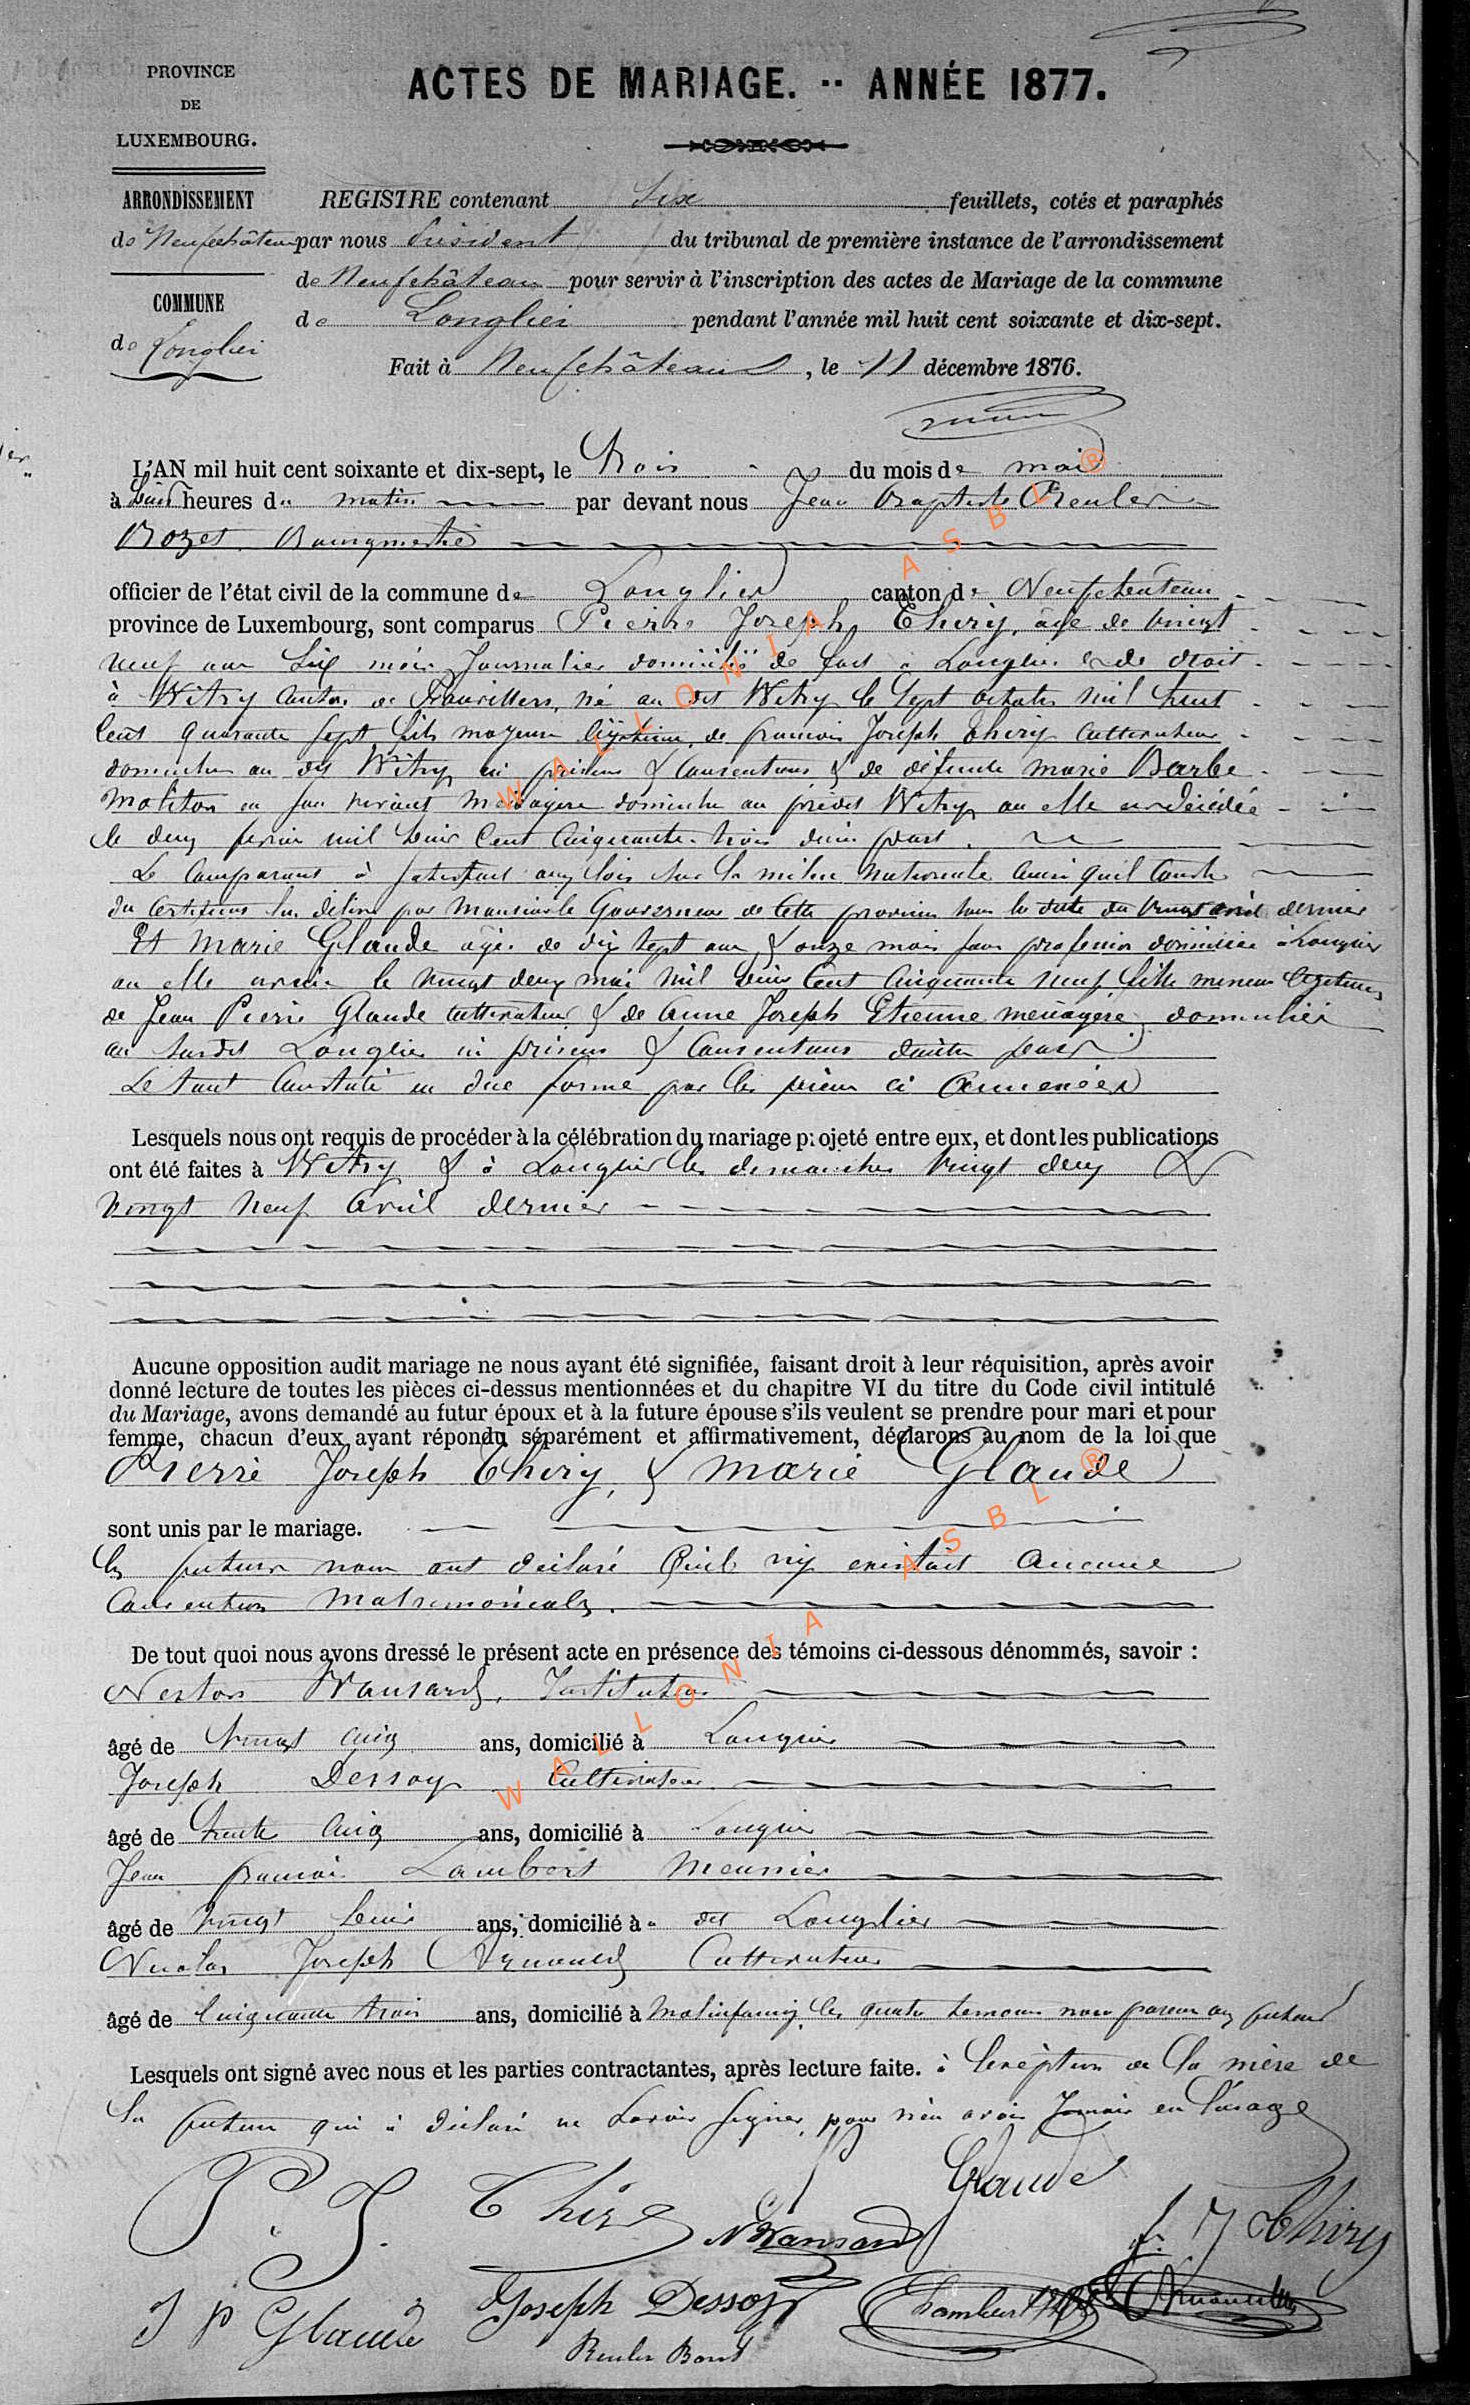 PROVINCE
DE
LUXEMBOURG.
ARRONDISSEMENT
de Neufchâteau
COMMUNE
de Longlier
ACTES DE MARIAGE. -- ANNÉE 1877.
REGISTRE contenant Six feuillets, cotés et paraphés
par nous Président du tribunal de première instance de l'arrondissement
de Neufchâteau pour servir à l'inscription des actes de Mariage de la commune
de Longlier pendant l'année mil huit cent soixante et dix-sept.
Fait à Neufchâteau, le 11 décembre 1876.
L'AN mil huit cent soixante et dix-sept, le Trois du mois de mai
à heures du matin par devant nous Jean Baptiste Reuler
Rozet Bourgmestre
officier de l'état civil de la commune de Longlier canton de Neufchâteau
province de Luxembourg, sont comparus Pierre Joseph Thiry, âgé de vingt
neuf ans Six mois Journalier domicilié de fait à Longlier & de droit
à Witry Canton de Fauvillers, né au dit Witry le Sept octobre mil huit
Cent quarante Sept fils majeur légitime de francois Joseph Thiry Cultivateur
domicilié au dit Witry ici présent & Consentant & de défunte marie Barbe
Moliton en son vivant Menagère domiciliée au prédit Witry où elle est décédée
le deux mil huit Cent Cinquante trois d'une part.
Le Comparant à satisfait aux lois sur la milice Nationale ainsi qu'il Conste
du Certificat lui délivré par Monsieur le Gouverneur de Cette province sous la date du vingt avril dernier
Et Marie Glaude agée de dix sept ans & onze mois sans profession domiciliée à Longlier
où elle est née le vingt deux mai mil huit Cent Cinquante neuf fille mineure légitime
de Jean Pierre Glaude Cultivateur & de Anne Joseph Etienne menagère domiciliés
au susdit Longlier ici présens & Consentans d'autre part
Le tout Constaté en due forme par les pièces ci annexées
Lesquels nous ont requis de procéder à la célébration du mariage projeté entre eux, et dont les publications
ont été faites à Witry & à Longlier les dimanches vingt deux &
vingt neuf avril dernier
Aucune opposition audit mariage ne nous ayant été signifiée, faisant droit à leur réquisition, après avoir
donné lecture de toutes les pièces ci-dessus mentionnées et du chapitre VI du titre du Code civil intitulé
du Mariage, avons demandé au futur époux et à la future épouse s'ils veulent se prendre pour mari et pour
femme, chacun d'eux ayant répondu séparément et affirmativement, déclarons au nom de la loi que
Pierre Joseph Thiry, & Marie Glaude
sont unis par le mariage.
les futurs nous ont déclaré qu'il n'y existait aucune
Convention Matrimoniale.
De tout quoi nous avons dressé le présent acte en présence des témoins ci-dessous dénommés, savoir :
Nestor Wansard, Instituteur
âgé de vingt cinq ans, domicilié à Longlier
Joseph Dessoy Cultivateur
âgé de trente cinq ans, domicilié à Longlier
Jean francois Lambert Meunier
âgé de vingt huit ans, domicilié à dit Longlier
Nicolas Joseph Arnould Cultivateur
âgé de Cinquante trois ans, domicilié à Molinfaing les quatre temoins non parens aux futurs
Lesquels ont signé avec nous et les parties contractantes, après lecture faite. à l'exception de la mère de
la future qui à déclaré ne savoir signer, pour n'en avoir Jamais eu l'usage
P. J. Thiry
Glaude
N Wansard
f. J Thiry
J P Glaude
Joseph Dessoy
Lambert
Arnould
Reuler Bour
WALLONIA ASBL ®
WALLONIA ASBL ®